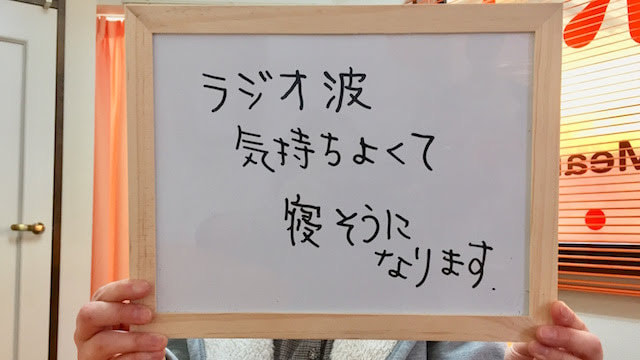 ラジオ波
気持ちよくて
寝そうに
なります.
Mea